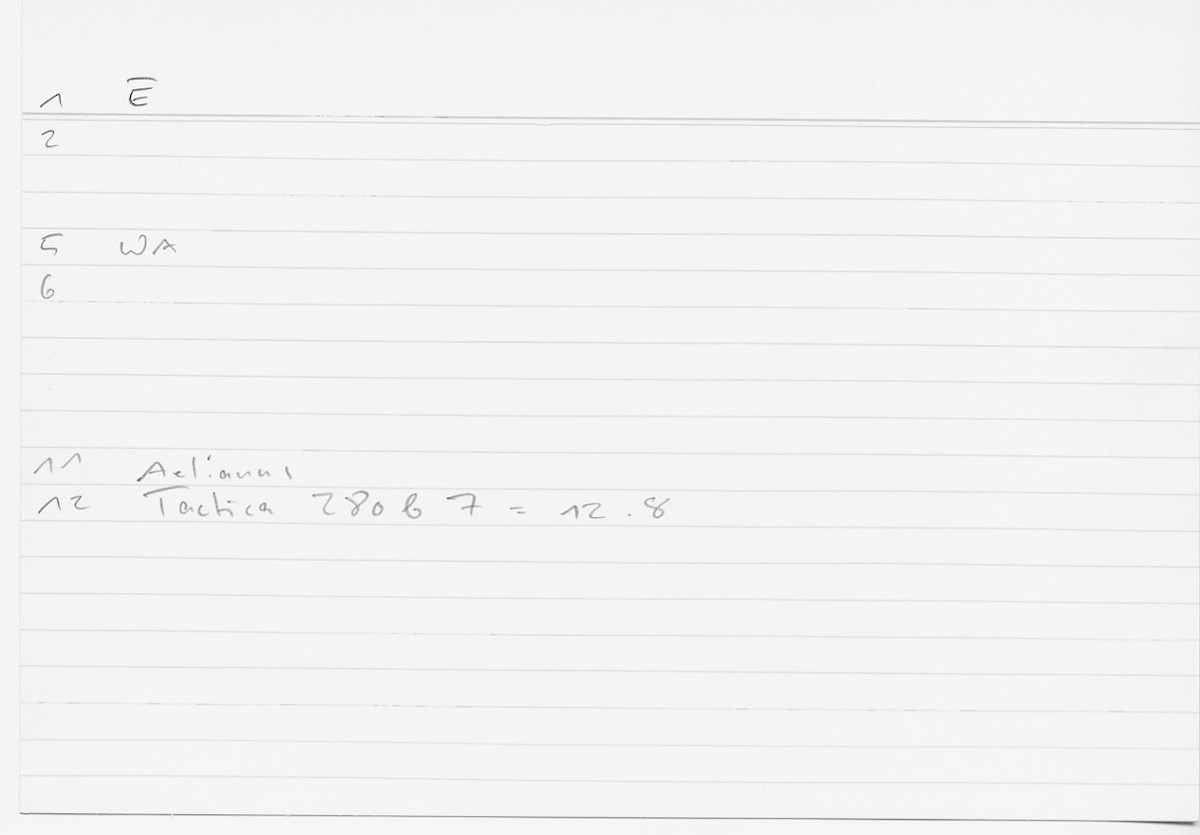 1 Ē
2
5 WA
6
11 Aelianus
12 Tactica 280 b 7 = 12.8